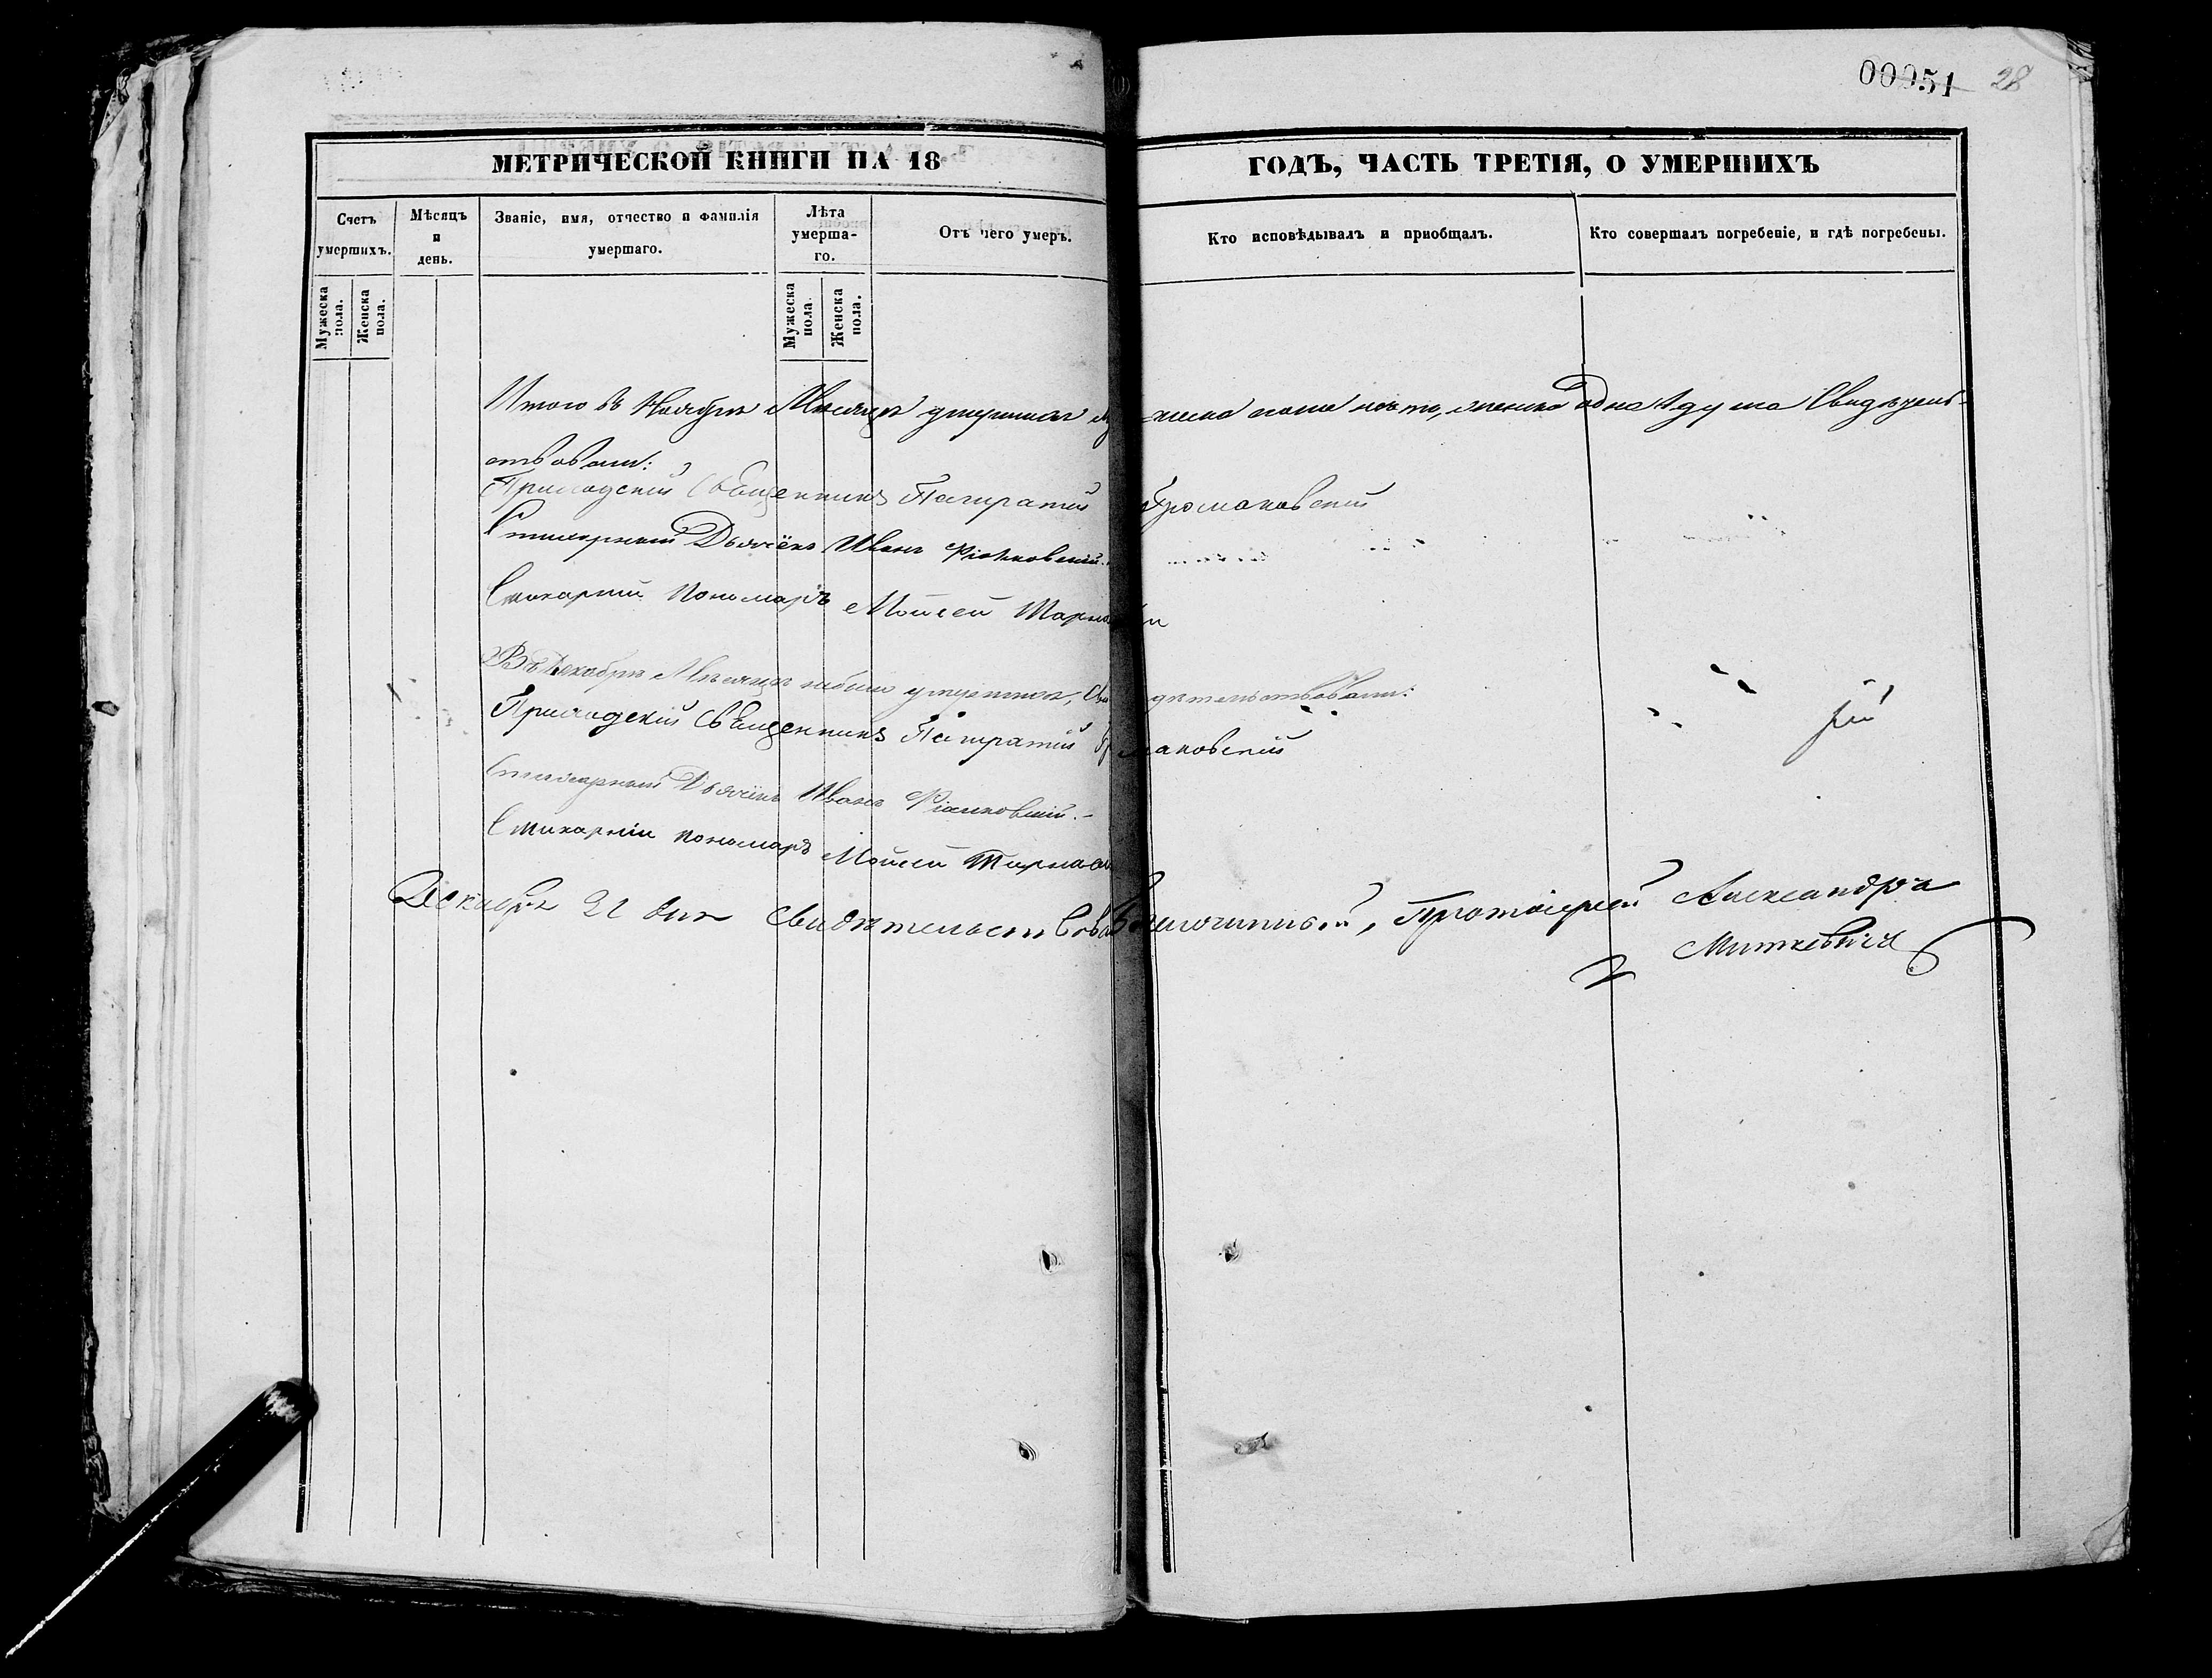 00051 28
МЕТРИЧЕСКОЙ КНИГИ НА 18 ГОДЪ, ЧАСТЬ ТРЕТІЯ, О УМЕРШИХЪ
Счетъ умершихъ.
Мужеска пола.
Женска пола.
Мѣсяцъ и день.
Званіе, имя, отчество и фамилія умершаго.
Лѣта умерша-го.
Мужеска пола.
Женска пола.
Отъ чего умеръ.
Кто исповѣдывалъ и пріобщалъ.
Кто совершалъ погребеніе, и гдѣ погребены.
Итого въ Ноябрѣ Мѣсяцѣ умершихъ пола нѣтъ, женска одна 1 душа Свидѣтель-
ствовали:
Приходскій Священникъ Панкратій Громаковскій
Стихарный Дьячёкъ Иванъ
Стихарній Пономаръ Мойсей
Въ Декабрѣ Мѣсяцѣ небыло умершихъ, Свидѣтельствовали:
Приходскій Священникъ Панкратій Громаковскій
Стихарный Дьячёкъ Иванъ
Стихарній пономаръ Мойсей
Декабря 21 дня Свидѣтельствовалъ Благочинный, Протоіерей Александръ
Миткевичъ